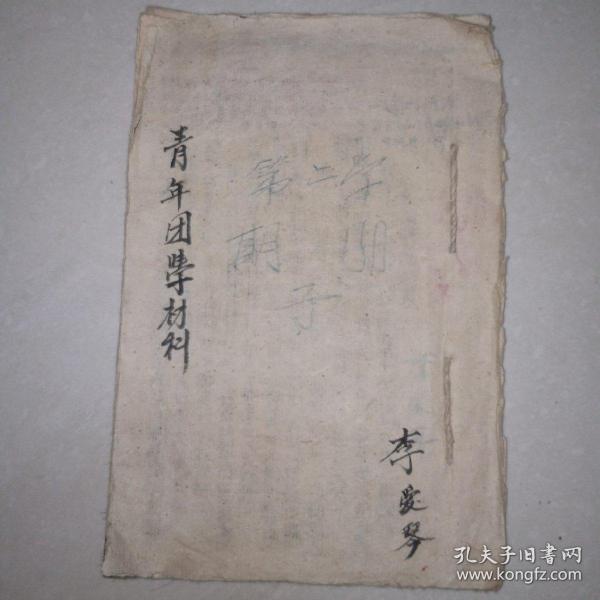 青年团学材料
第二学
期
子
李爱琴
孔夫子旧书网
www.kongfz.com